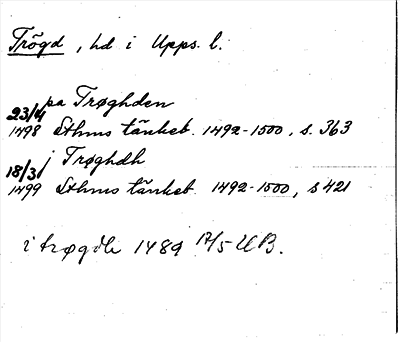 Trögd, hd i Upps. l.
pa Trøghden
23/4 1498 Sthms tänkeb. 1492-1500, s. 363
j Trøghdh
18/3 1499 Sthms tänkeb. 1492-1500, s 421
i trøgdh 1489 17/5 UB.